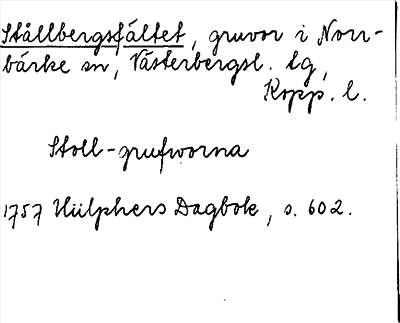 Stållbergsfältet, gruvor i Norr-
bärke sn, Västerbergsl. tg,
Kopp. l.
Stoll-grufworna
1757 Hülphers Dagbok, s. 602.